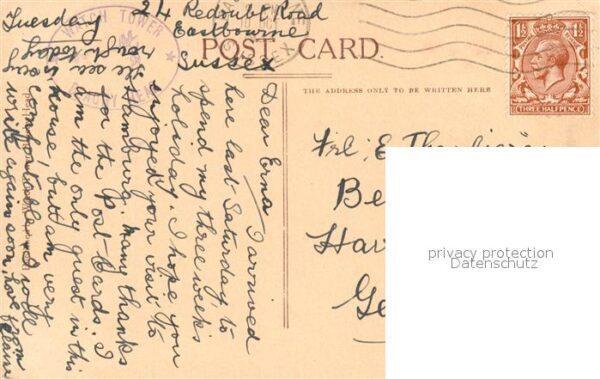 Tuesday
24 Redoubt Road
Eastbourne
Sussex
POST CARD.
THE ADDRESS ONLY TO BE WRITTEN HERE
WATCH TOWER
1½ 1½
THREE HALFPENCE
Dear Erna I arrived
here last Saturday to
spend my three weeks
holiday. I hope you
enjoyed your visit to
Hamburg. Many thanks
for the Post-Cards. I
am the only guest in this
house, but am very
comfortable. I will
write again soon, love from
The sea is very
rough today
Frl: E
Be
Ha
Ge
privacy protection
Datenschutz